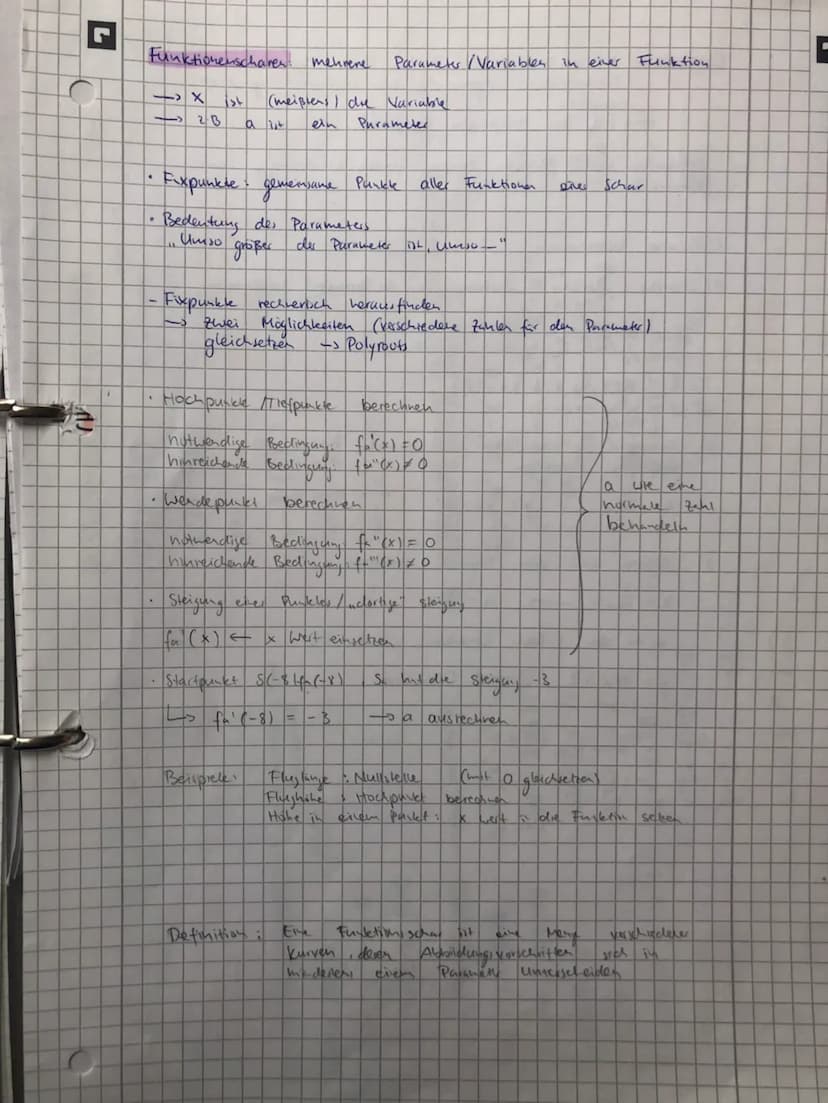 Funktionenscharen: mehrere Parameter/Variablen in einer Funktion
→ x ist (meistens) die Variable
→ zB a ist ein Parameter
• Fixpunkte: gemeinsame Punkte aller Funktionen einer Schar
• Bedeutung des Parameters
„Umso größer der Parameter ist, umso …"
– Fixpunkte rechnerisch herausfinden
→ zwei Möglichkeiten (verschiedene Zahlen für den Parameter)
gleichsetzen → Polyroots
• Hochpunkte/Tiefpunkte berechnen
notwendige Bedingung: fa'(x) = 0
hinreichende Bedingung: fa''(x) ≠ 0
• Wendepunkt berechnen
notwendige Bedingung fa''(x) = 0
hinreichende Bedingung: fa'''(x) ≠ 0
a wie eine
normale Zahl
behandeln
• Steigung eines Punktes/„dortige" Steigung
fa'(x) ← x Wert einsetzen
• Startpunkt S(-8|fa(-8)) hat die Steigung -3
↳ fa'(-8) = -3 → a ausrechnen
Beispiele: Fluglänge: Nullstelle (mit 0 gleichsetzen)
Flughöhe: Hochpunkt berechnen
Höhe in einem Punkt: x Wert in die Funktion setzen
Definition: Eine Funktionsschar ist eine Menge verschiedener
Kurven, deren Abbildungsvorschriften sich in
mindestens einem Parameter unterscheiden